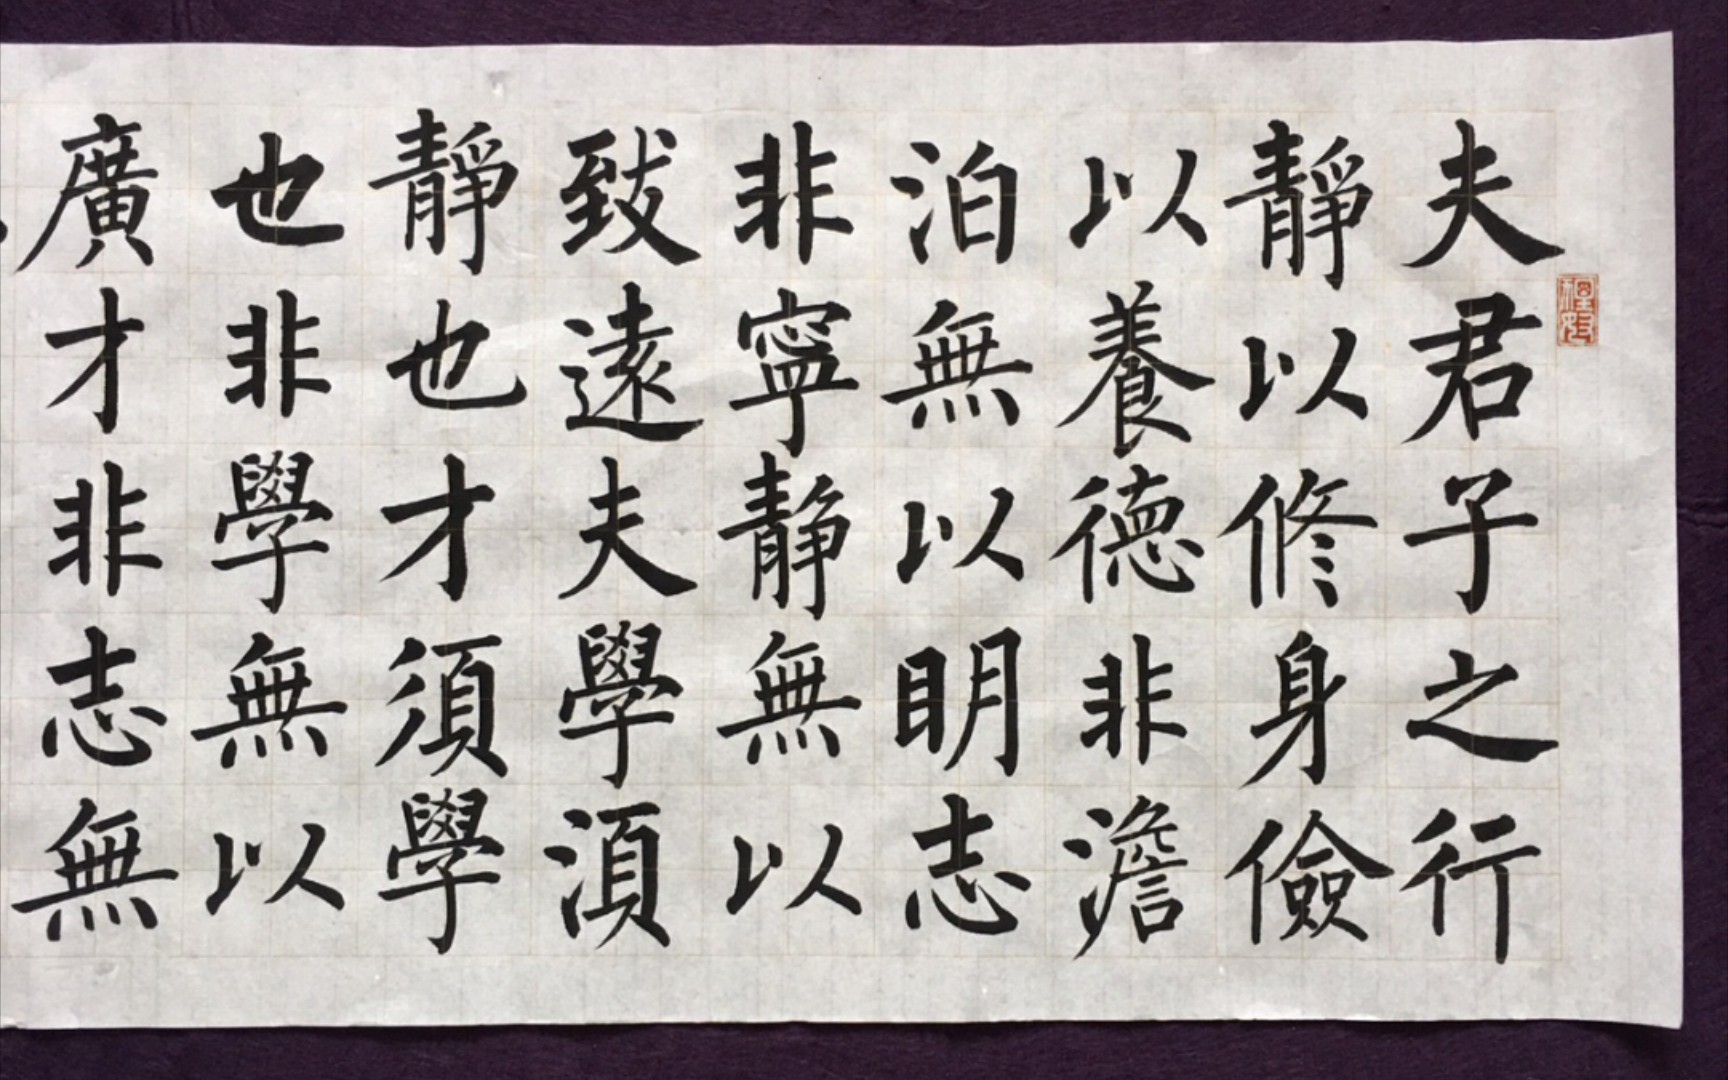 夫君子之行
靜以修身儉
以養德非澹
泊無以明志
非寧靜無以
致遠夫學須
靜也才須學
也非學無以
廣才非志無